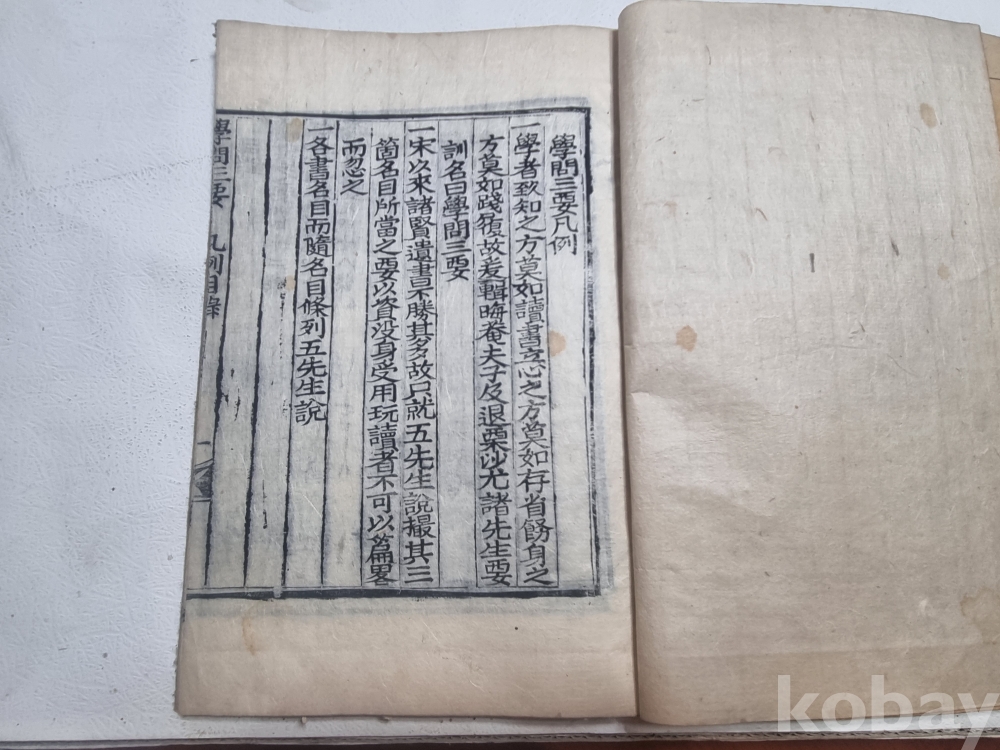 學問三要凡例
一學者致知之方莫如讀書立心之方莫如存省飭身之
方莫如踐履故爰輯晦菴夫子及退栗沙尤諸先生要
訓名曰學問三要
一宋以來諸賢遺書不勝其多故只就五先生說撮其三
箇名目所當之要以資没身受用玩讀者不可以篇畧
而忽之
一各書名目而隨名目條列五先生說
學問三要 凡例目錄 一
kobay